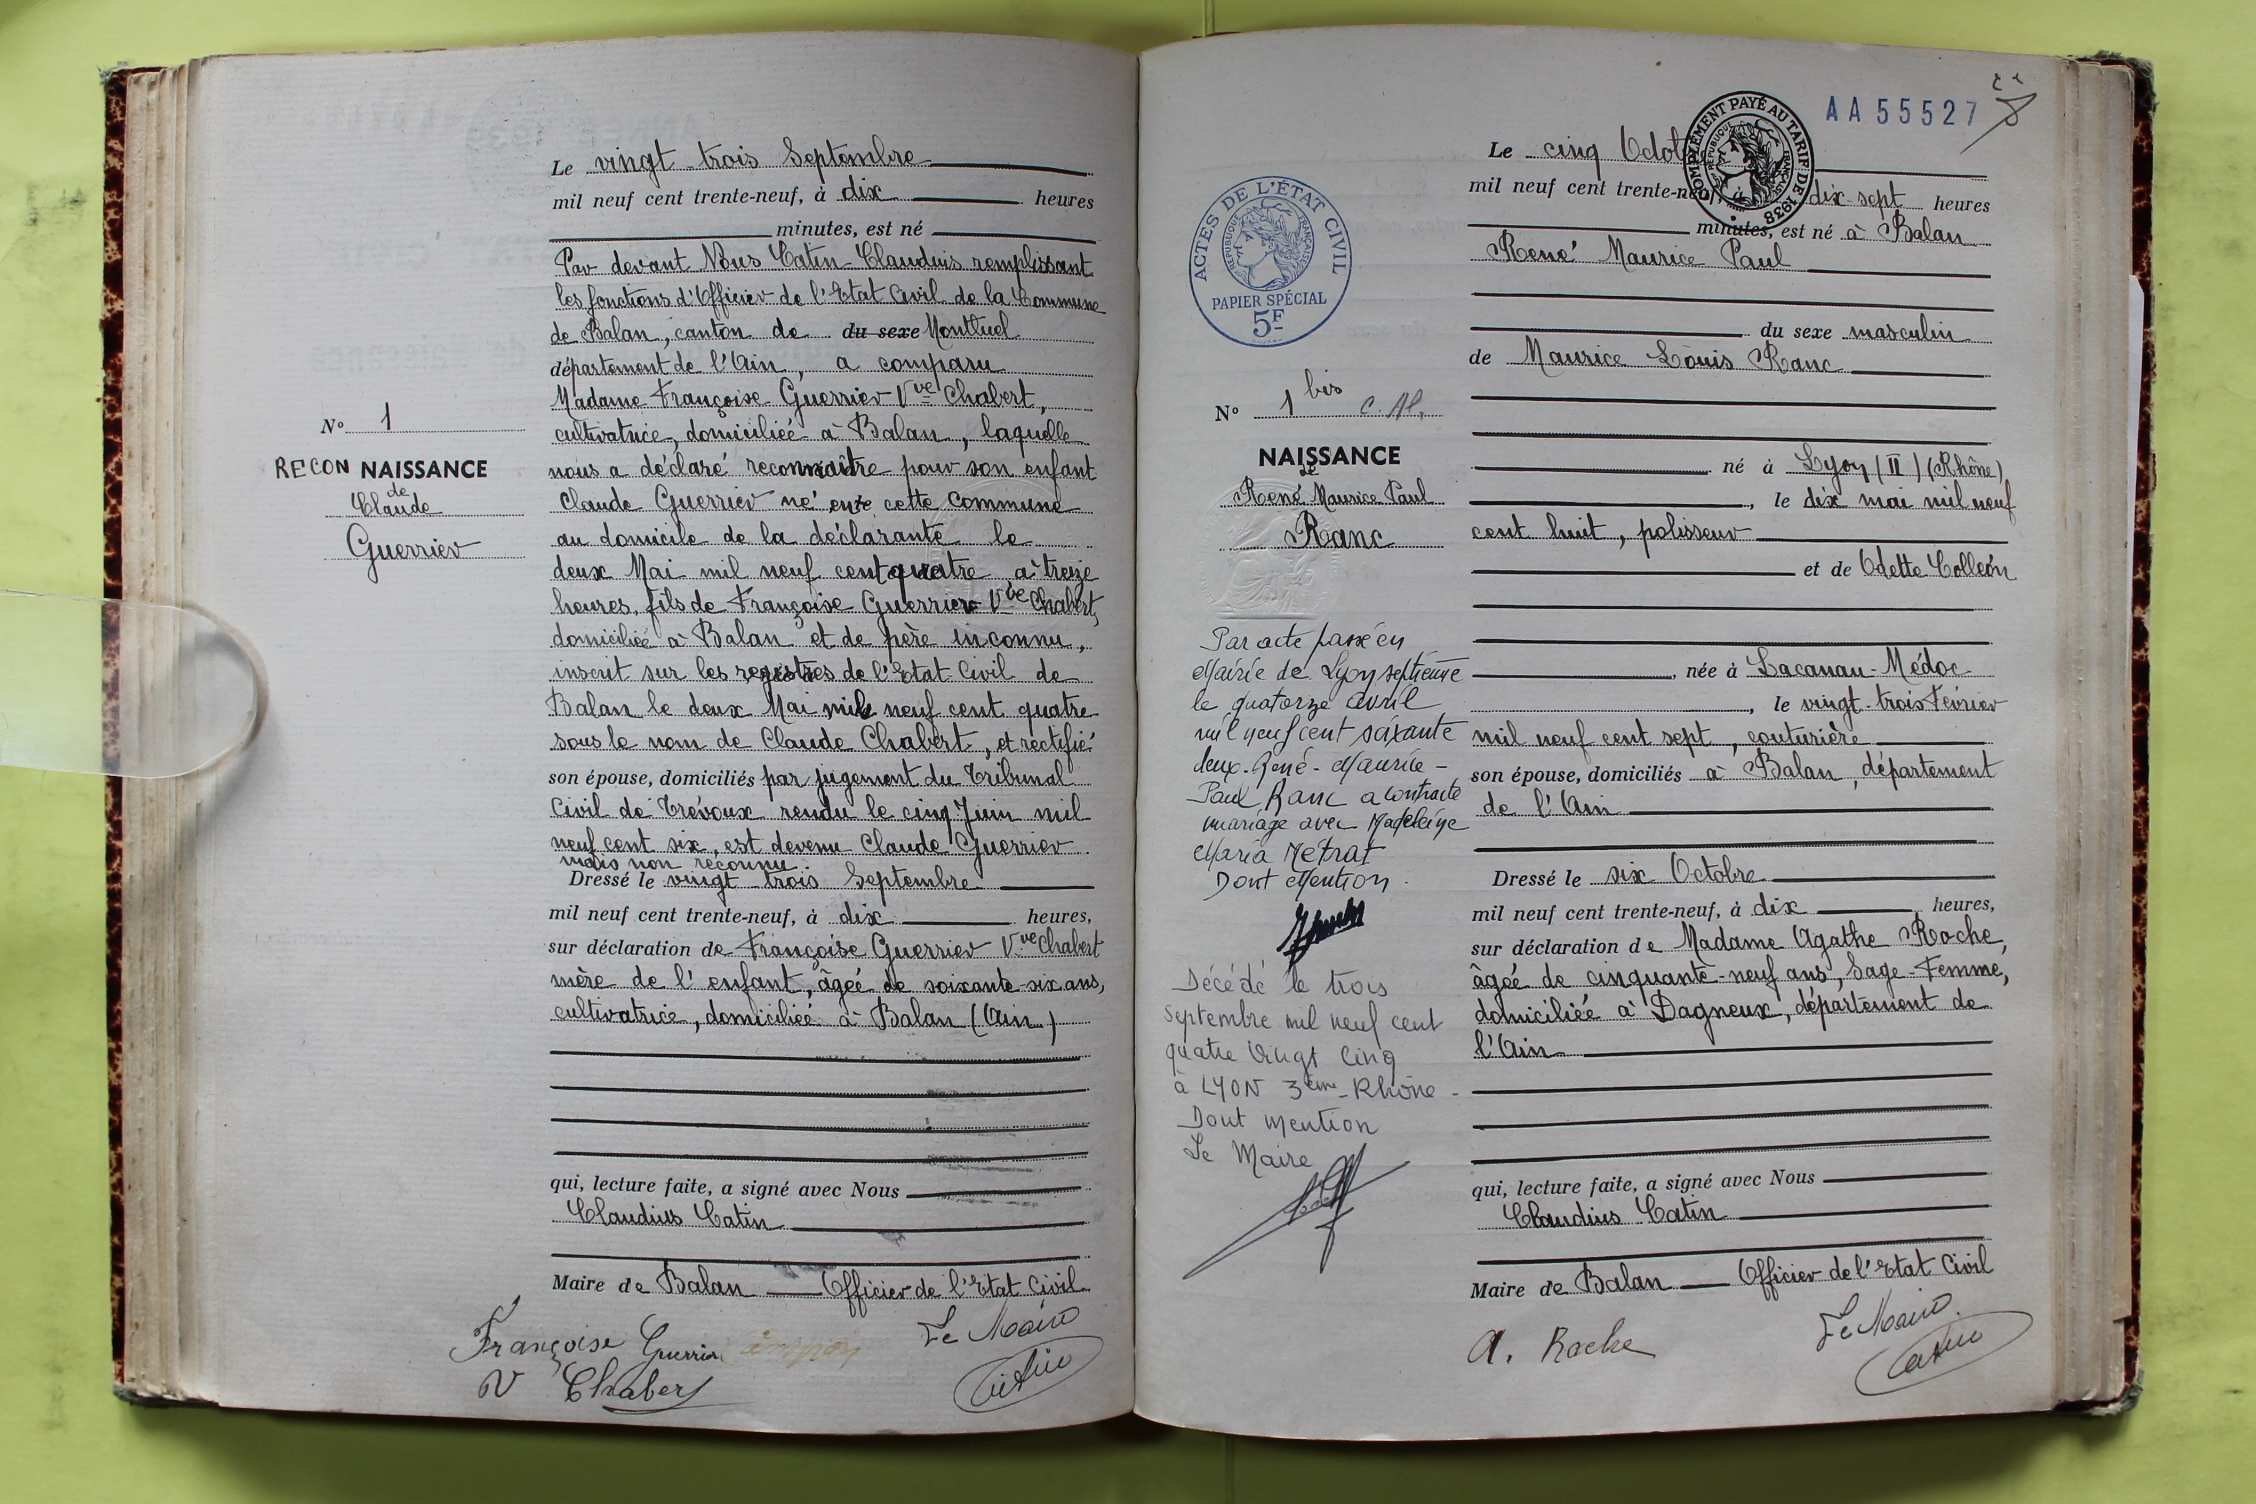 Le vingt-trois Septembre
mil neuf cent trente-neuf, à dix heures
minutes, est né
Par devant Nous Catin Claudius remplissant
les fonctions d'Officier de l'Etat Civil de la Commune
de Balan, canton de du sexe Montluel
département de l'Ain, a comparu
Madame Françoise Guerrier Vve Chabert,
cultivatrice, domiciliée à Balan, laquelle
nous a déclaré reconnaître pour son enfant
Claude Guerrier né en cette commune
au domicile de la déclarante le
deux Mai mil neuf cent quatre à treize
heures, fils de Françoise Guerrier Vve Chabert,
domiciliée à Balan et de père inconnu,
inscrit sur les registres de l'Etat Civil de
Balan le deux Mai mil neuf cent quatre
sous le nom de Claude Chabert, et rectifié
son épouse, domiciliés par jugement du Tribunal
Civil de Trévoux rendu le cinq Juin mil
neuf cent six, est devenu Claude Guerrier
mais non reconnu.
Dressé le vingt-trois Septembre
mil neuf cent trente-neuf, à dix heures,
sur déclaration de Françoise Guerrier Vve Chabert
mère de l'enfant, âgée de soixante-six ans,
cultivatrice, domiciliée à Balan (Ain)
qui, lecture faite, a signé avec Nous
Claudius Catin
Maire de Balan Officier de l'Etat Civil
Françoise Guerrier
V Chabert
Le Maire
Catin
No 1
RECON NAISSANCE
de
Claude
Guerrier
AA 55527
COMPLÉMENT PAYÉ AU TARIF DE 1938
RÉPUBLIQUE FRANÇAISE
ACTES DE L'ÉTAT CIVIL
RÉPUBLIQUE FRANÇAISE
PAPIER SPÉCIAL
5F
No 1 bis C. M.
NAISSANCE
de
René Maurice Paul
Ranc
Par acte passé en
Mairie de Lyon septième
le quatorze avril
mil neuf cent soixante
deux. René-Maurice-
Paul Ranc a contracté
mariage avec Madeleine
Maria Métrat
Dont Mention.
Décédé le trois
septembre mil neuf cent
quatre vingt cinq
à LYON 3ème - Rhône -
Dont mention
Le Maire
Le cinq Octobre
mil neuf cent trente-neuf, à dix-sept heures
minutes, est né à Balan
René Maurice Paul
du sexe masculin
de Maurice Louis Ranc
né à Lyon (II) (Rhône)
, le dix mai mil neuf
cent huit, polisseur
et de Odette Colléon
, née à Lacanau-Médoc
, le vingt-trois Février
mil neuf cent sept, couturière
son épouse, domiciliés à Balan, département
de l'Ain
Dressé le six Octobre
mil neuf cent trente-neuf, à dix heures,
sur déclaration de Madame Agathe Roche,
âgée de cinquante-neuf ans, Sage-Femme,
domiciliée à Dagneux, département de
l'Ain
qui, lecture faite, a signé avec Nous
Claudius Catin
Maire de Balan Officier de l'Etat Civil
A. Roche
Le Maire
Catin